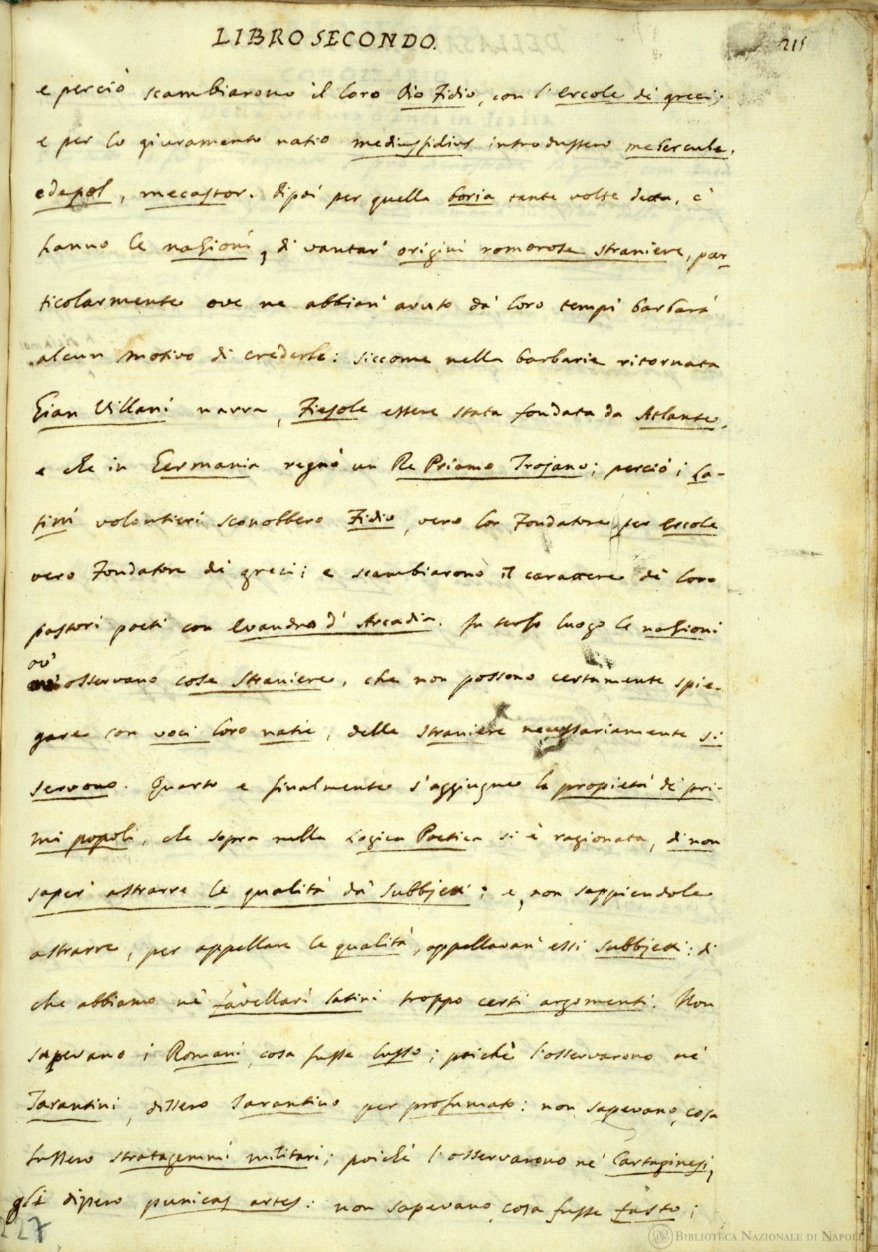 LIBRO SECONDO.
215
e perciò scambiarono il loro Dio Fidio, con l'Ercole de' greci;
e per lo giuramento natio mediusfidius introdussero mehercule,
edepol, mecastor. Dipoi per quella boria tante volte detta, c'
hanno le nazioni, di vantar' origini romorose straniere, par
ticolarmente ove ne abbian' avuto da' loro tempi barbari
alcun motivo di crederle: siccome nella barbarie ritornata
Gian Villani narra, Fiesole essere stata fondata da Atlante,
e che in Germania regnò un Re Priamo Trojano; perciò i La-
tini volontieri sconobbero Fidio, vero lor Fondatore per Ercole
vero Fondatore de' greci; e scambiarono il carattere de' loro
pastori poeti con Evandro d' Arcadia. In terzo luogo le nazioni
ov'
osservano cose straniere, che non possono certamente spie-
gare con voci loro natie, delle straniere necessariamente si
servono. Quarto e finalmente s'aggiugne la propietà de' pri-
mi popoli, che sopra nella Logica Poetica si è ragionata, di non
saper' astrarre le qualità da' subbjetti; e, non sappiendole
astrarre, per appellare le qualità, appellavan' essi subbjetti: di
che abbiamo ne' favellari latini troppo certi argomenti. Non
sapevano i Romani, cosa fusse lusso; poichè l'osservarono ne'
Tarantini, dissero Tarantino per profumato: non sapevano, cosa
fussero stratagemmi militari; poichè l'osservarono ne' Cartaginesi,
gli dissero punicas artes: non sapevano, cosa fusse fasto;
227
BIBLIOTECA NAZIONALE DI NAPOLI